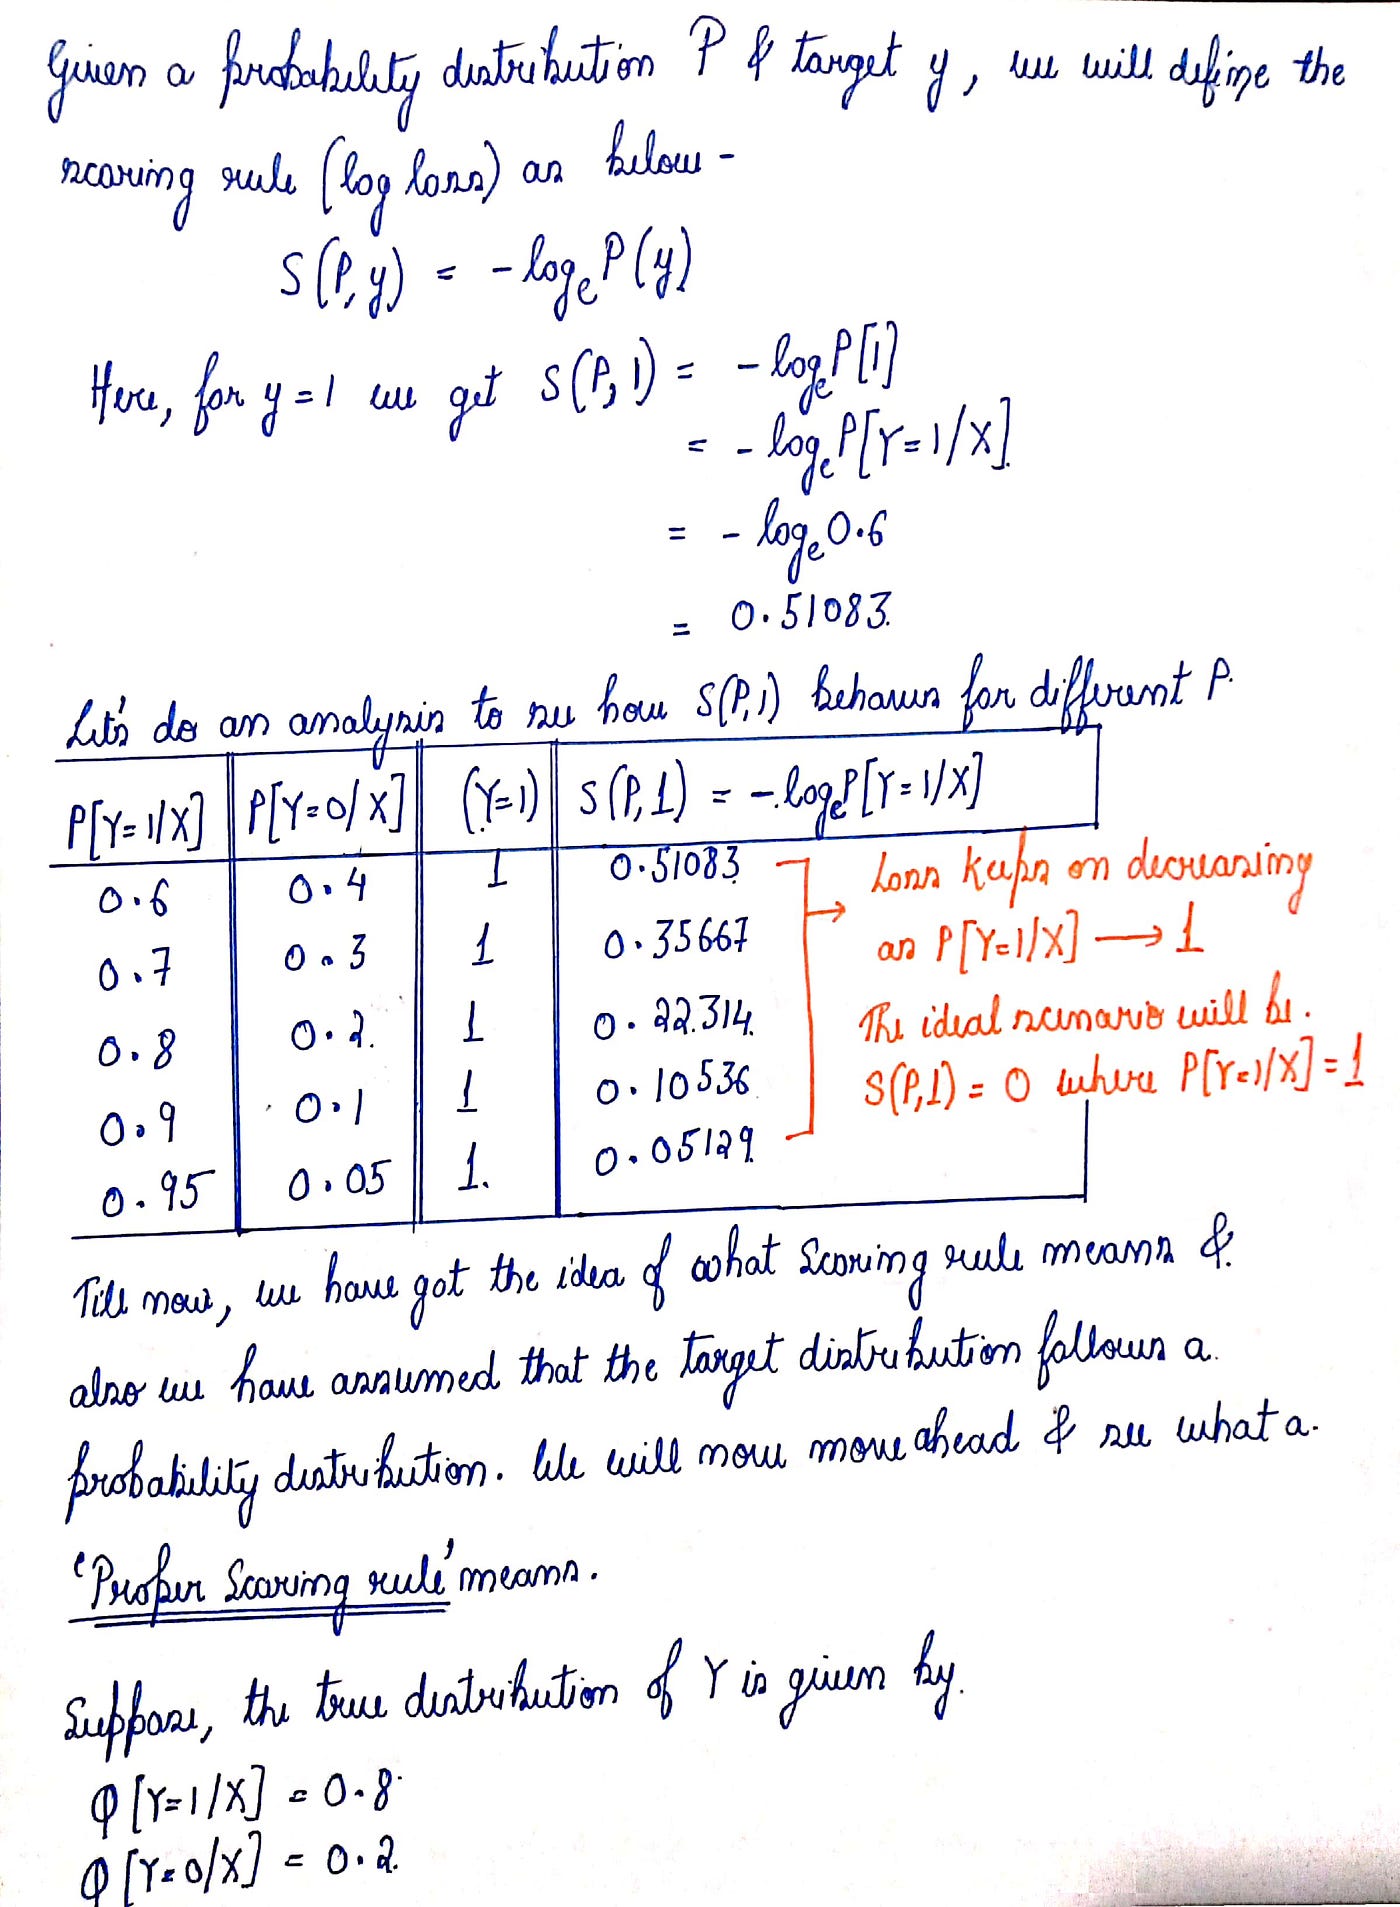 Given a probability distribution P & target y, we will define the
scoring rule (log loss) as below -
S(P,y) = -logₑP(y)
Here, for y=1 we get S(P,1) = -logₑP[1]
= -logₑP[Y=1/X].
= -logₑ0.6
= 0.51083.
Let's do an analysis to see how S(P,1) behaves for different P.
P[Y=1/X] P[Y=0/X] (Y=1) S(P,1) = -logₑP[Y=1/X]
0.6 0.4 1 0.51083
0.7 0.3 1 0.35667
0.8 0.2. 1 0.22314.
0.9 0.1 1 0.10536
0.95 0.05 1. 0.05129.
Loss keeps on decreasing
as P[Y=1/X] → 1
The ideal scenario will be.
S(P,1) = 0 where P[Y=1/X] = 1
Till now, we have got the idea of what Scoring rule means &.
also we have assumed that the target distribution follows a.
probability distribution. We will now move ahead & see what a.
'Proper Scoring rule' means.
Suppose, the true distribution of Y is given by.
Q[Y=1/X] = 0.8.
Q[Y=0/X] = 0.2.